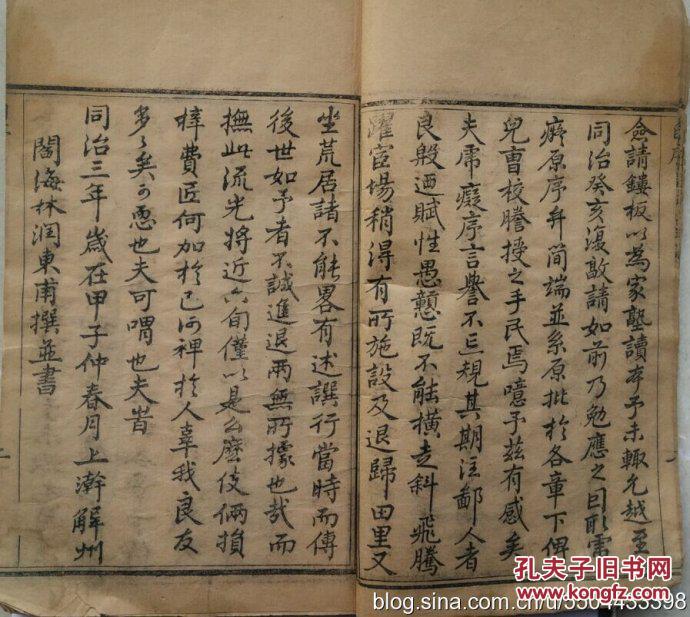 僉請鏤板以為家塾讀本予未輒允越至
同治癸亥復敦請如前乃勉應之曰形需
癡原序弁简端並系原批於各章下俾
兒曹校謄授之手民焉噫予茲有感矣
夫席癡序言譽不忘規其期注鄙人者
良殷迺賦性愚戇既不能橫走斜飛騰
躍宦場稍得有所施設及退歸田里又
坐荒居諸不能畧有述譔行當時而傳
後世如予者不誠進退兩無所據也哉而
撫此流光將近六旬僅以是么麼伎倆損
梓費匠何加於己何裨於人辜我良友
多多矣可慝也夫可喟也夫旹
同治三年歲在甲子仲春月上澣解州
閤海林润東甫撰並書
孔夫子旧书网
www.kongfz.com
blog.sina.com.cn/u/5504433398